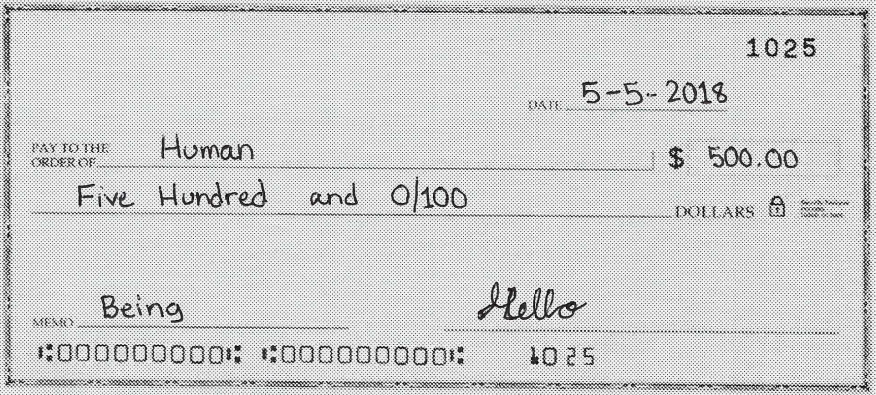 1025
DATE 5-5-2018
PAY TO THE
ORDER OF Human $ 500.00
Five Hundred and 0/100 DOLLARS
MEMO Being Hello
⑆000000000⑆ ⑆000000000⑆ 1025